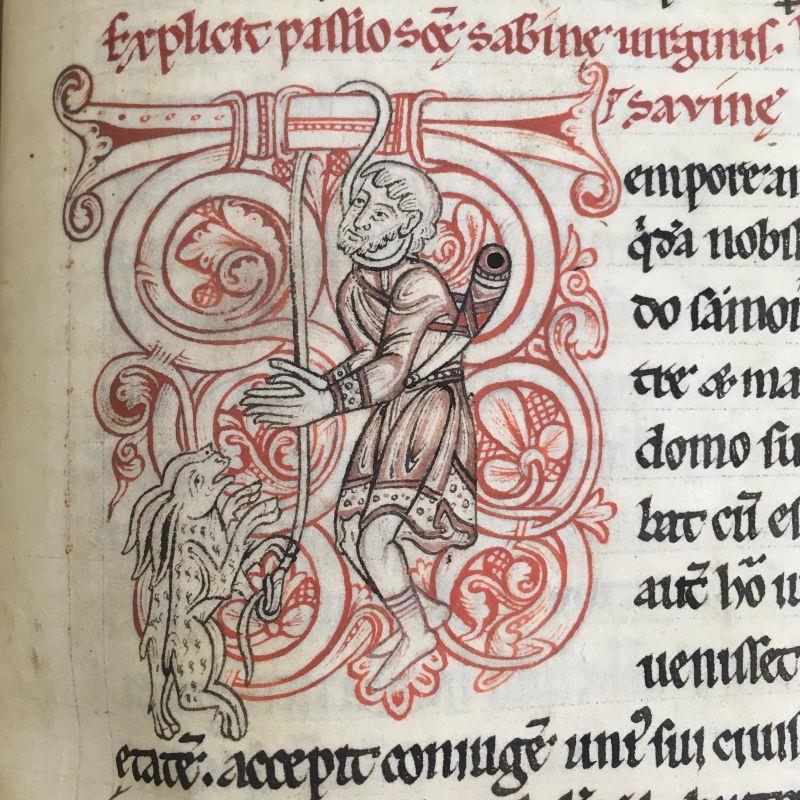 Explicit passio sc̄ę sabinę uirginis.
savinę
empore
qͥdā nobi
do
tre & ma
domo su
bat cū es
aut̄ hō u
uenisset
etatē. accepit coniugē uniꝰ sui ciuis